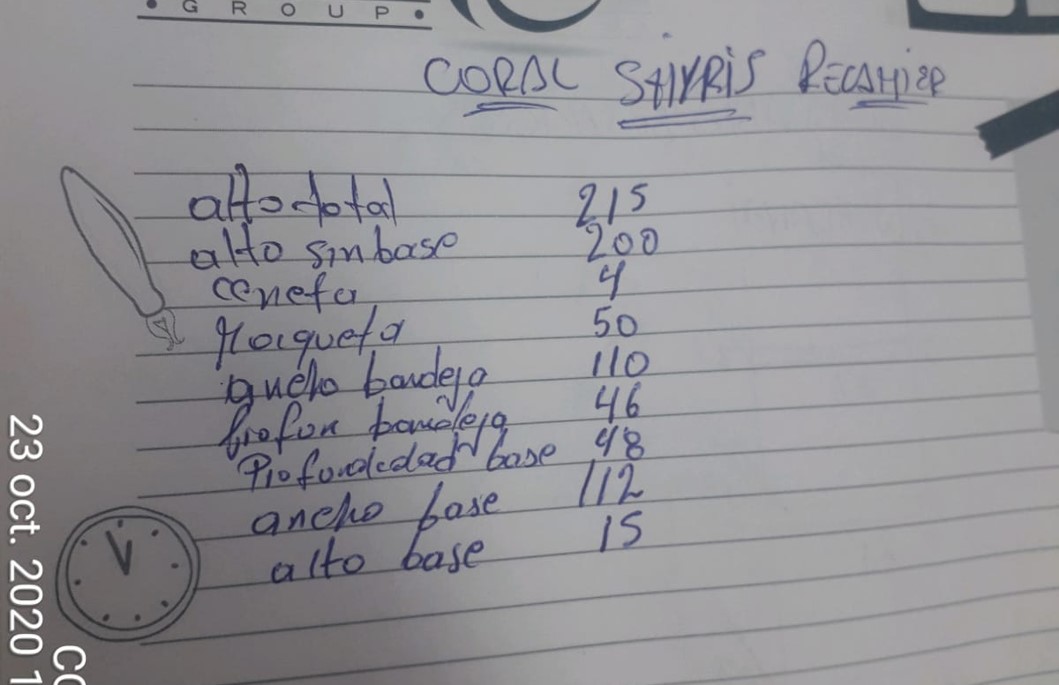 • G R O U P •
CORAL RECAMIER
alto total 215
alto sin base 200
cenefa 4
50
ancho bandeja 110
profun bandeja 46
Profundidad base 48
ancho base 112
alto base 15
23 oct. 2020 1
CO